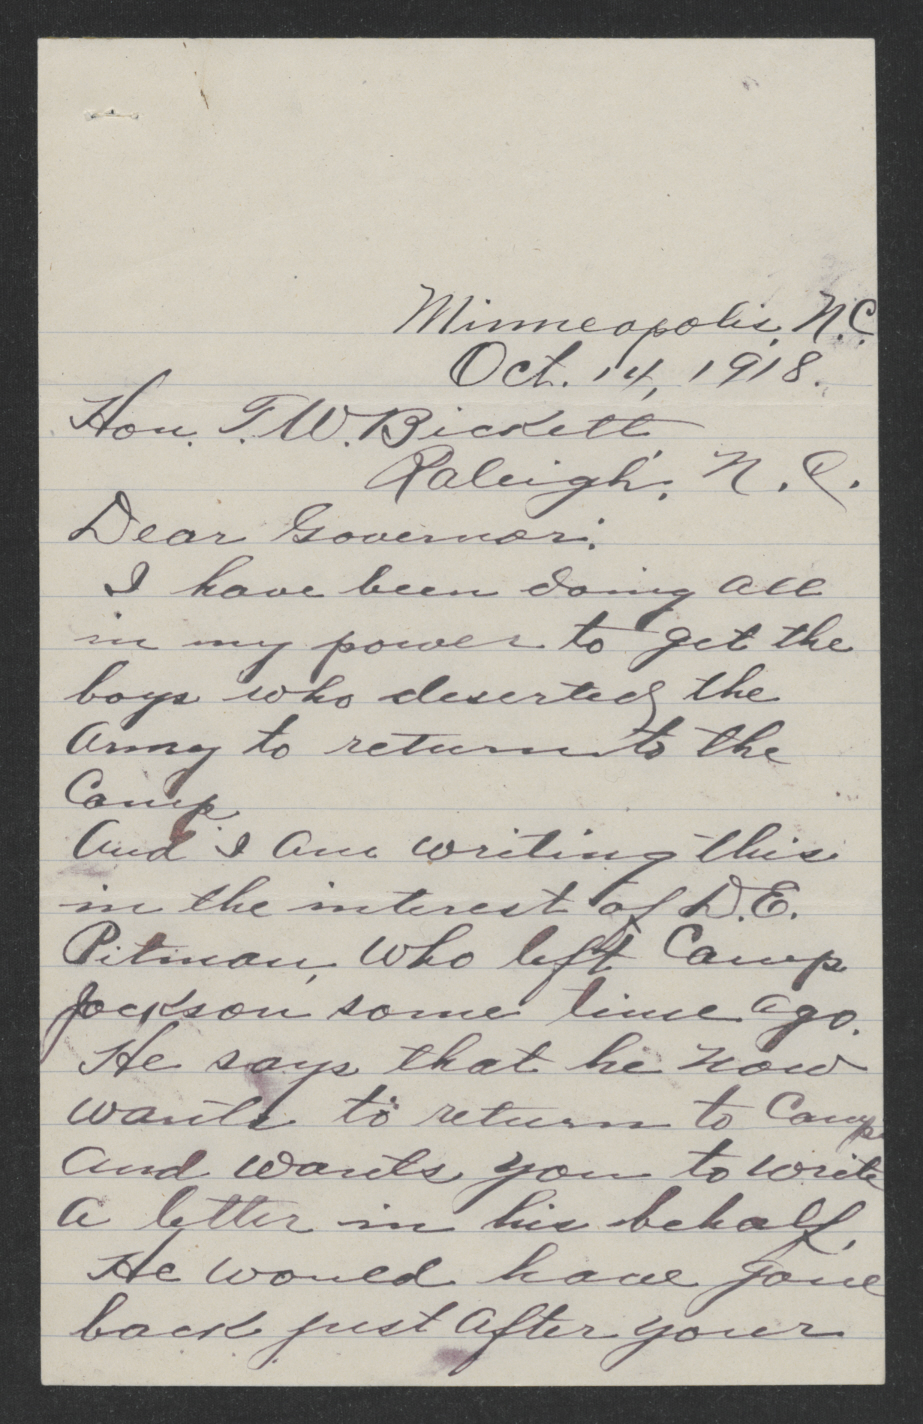 Minneapolis, N.C.
Oct. 14, 1918.
Hon. T. W. Bickett
Raleigh, N. C.
Dear Governor:
I have been doing all
in my power to get the
boys who deserted the
Army to return to the
Camp
And I am writing this
in the interest of D.E.
Pitman, who left Camp
Jackson some time ago.
He says that he now
wants to return to Camp
and wants you to write
a letter in his behalf.
He would have gone
back just after your